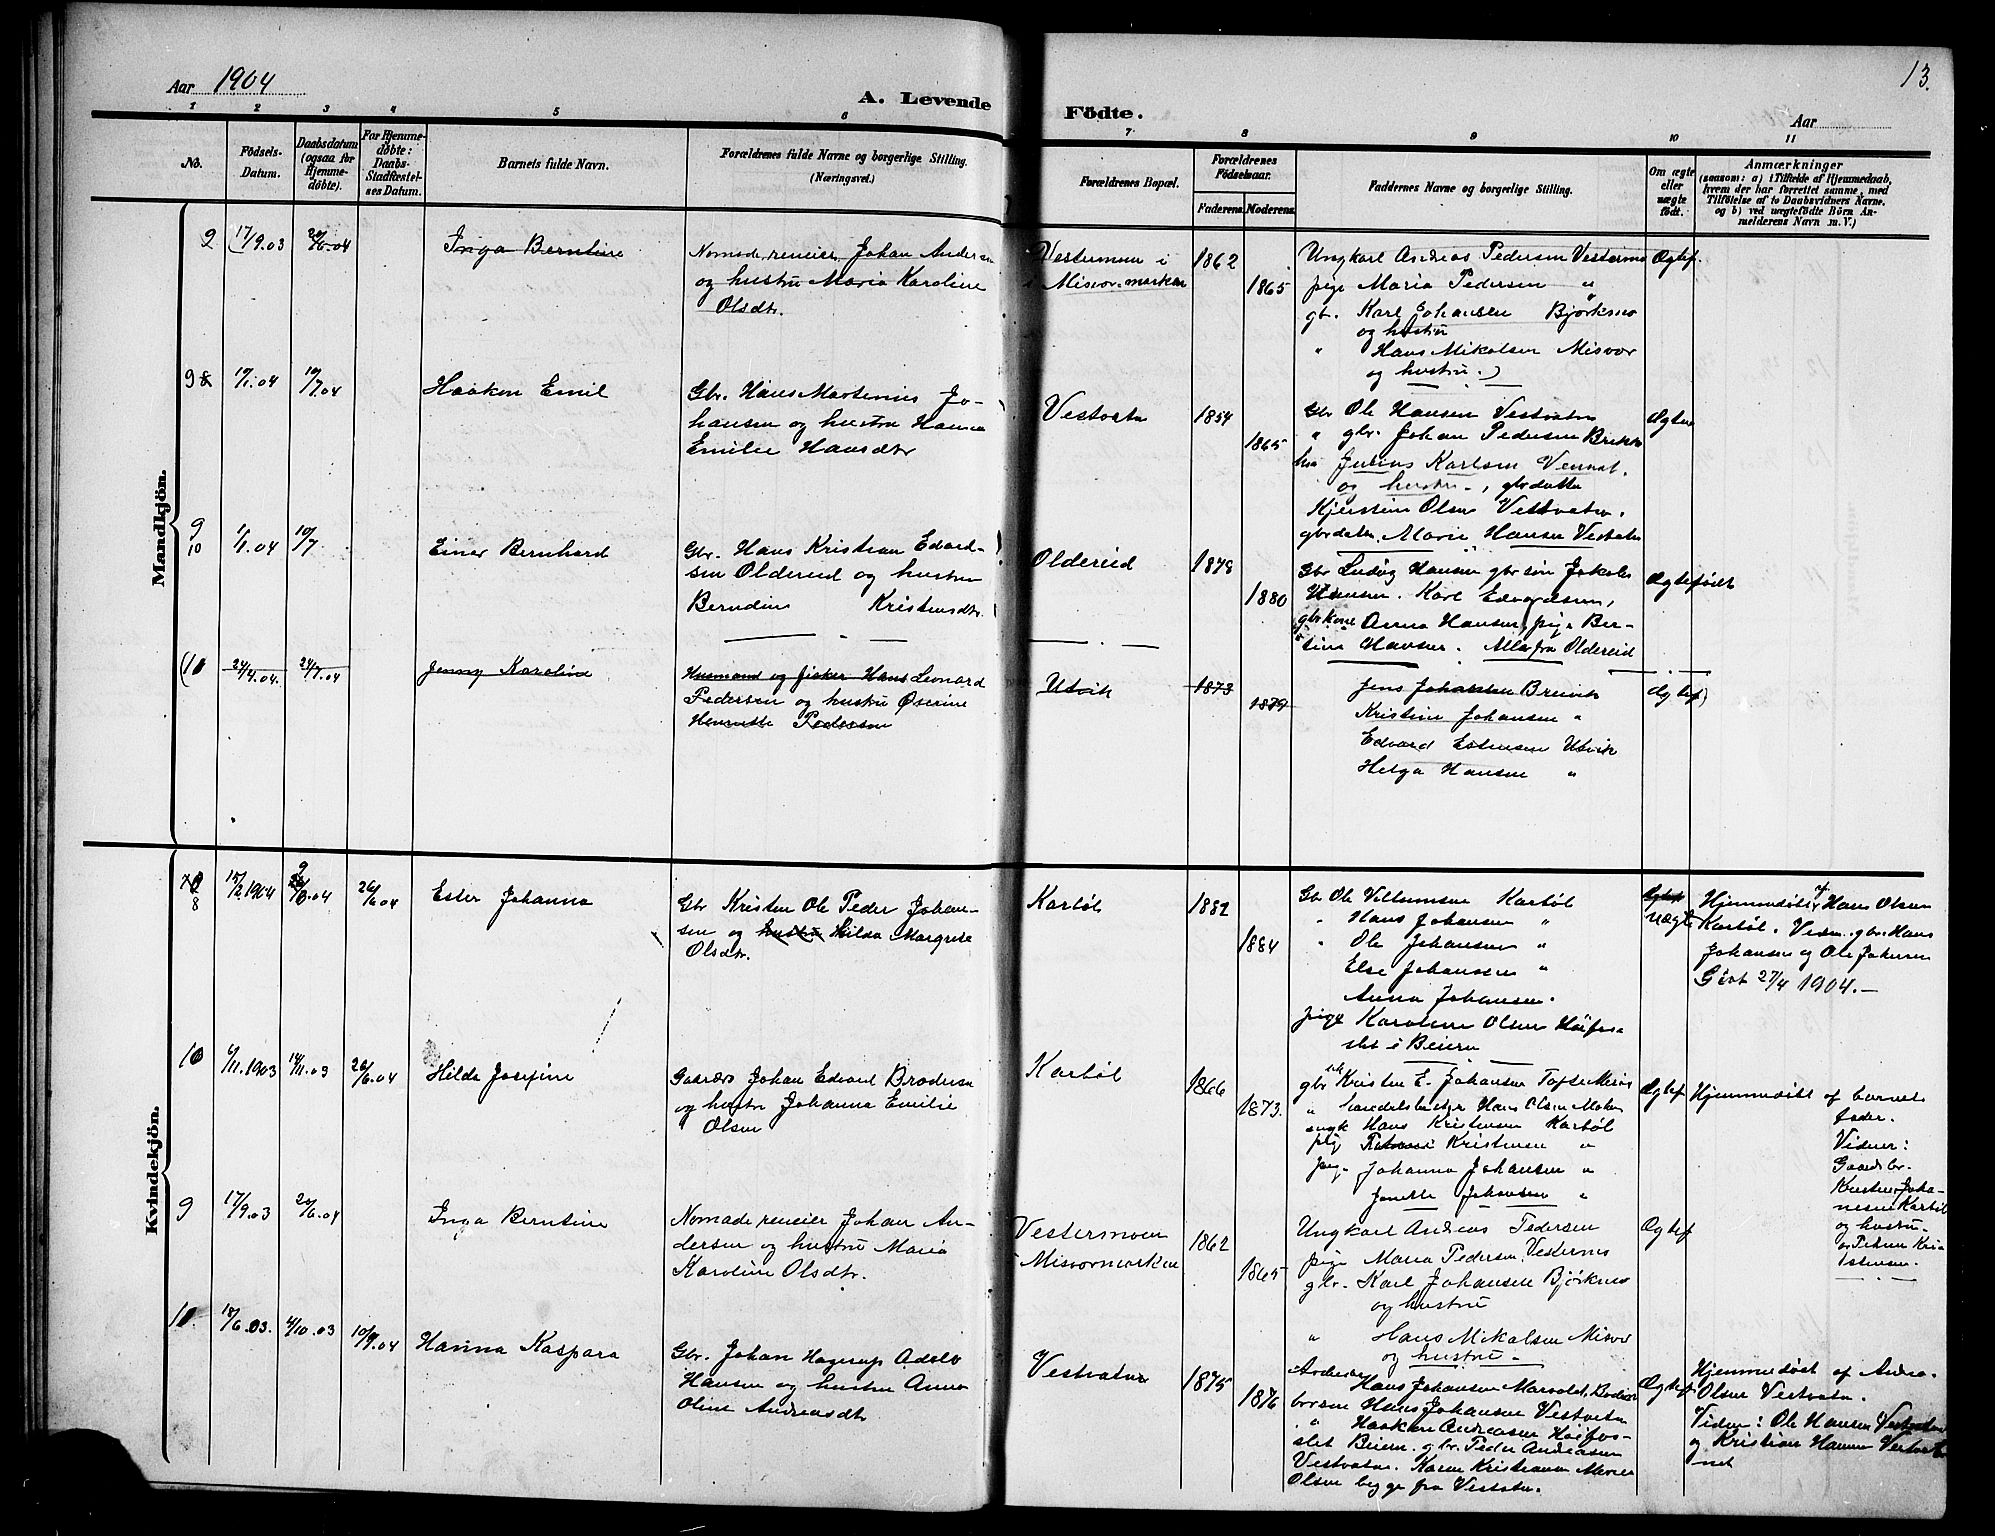 Aar 1904
A. Levende Födte.
13.
Aar
1 2 3 4 5 6 7 8 9 10 11
No.
Födsels-
Datum.
Daabsdatum
(ogsaa for
Hjemme-
döbte).
For Hjemme-
döbte:
Daabs-
Stadfæstel-
ses Datum.
Barnets fulde Navn.
Forældrenes fulde Navne og borgerlige Stilling.
(Næringsvei.)
Forældrenes Bopæl.
Forældrenes
Födselsaar.
Faderens. Moderens.
Faddernes Navne og borgerlige Stilling.
Om ægte
eller
uægte
födt.
Anmærkninger
(saasom: a) i Tilfælde af Hjemmedaab,
hvem der har forrettet samme, med
Tilföielse af to Daabsvidners Navne.
og b) ved uægtefödte Börn An-
melderens Navn m. V.)
Mandkjön.
9 17/9.03 26/6.04
Inga Berntine
Nomade, reneier Johan Anders
og hustru Maria Karoline
Olsdtr.
Vestermoen i
Misvor.marken
1862
1865
Ungkarl Andreas Pedersen Vestermo
pige Maria Pedersen "
gbr. Karl Johansen Bjørkmo
og hustru
" Hans Mikalsen Misvor
og hustru.)
Ægtef.
9 1/1.04 10/7 04
Haakon Emil
Gbr. Hans Martinius Jo-
hansen og hustru Hanna
Emilie Hansdtr
Vestvatn
1854
1865
Gbr Ole Hansen Vestvatn
" gbr. Johan Pedersen
Julius Karlsen
og hustru., gbrdatter
Kjerstine Olsen Vestvatn.
gbrdatter. Marie Hansen Vestvatn
Ægte
9
10 1/1.04 10/7
Einar Bernhard
Gbr. Hans Kristian Edvard-
sen Oldereid og hustru
Berndine Kristensdtr.
Oldereid
1878
1880
Gbr Ludvig Hansen gbrsøn Jakob
Hansen. Karl Edvardsen,
gbrkone Anna Hansen, pige Ber-
tine Hansen. Alle fra Oldereid
Ægtefødt
(10 24/4.04. 24/7.04
Jenny Karoline
Husmand og fisker Hans Leonard
Pedersen og hustru Øserine
Henriette Pedersen
Utvik
1873
1879
Jens Johansen Breivik
Kristine Johansen "
Edvard Estensen Utvik
Helga Hansen "
Ægtef)
Kvindekjön.
8 15/2 1904 04 26/6 04
Ester Johanna
Gbr Kristen Ole Peder Johan-
sen og hustru Hilda Margrete
Olsdtr.
Karbøl
1882
1884
Gbr Ole Villumsen Karbøl
" Hans Johansen "
" Ole Johansen "
Else Johansen "
Anna Johansen.
pige Karoline Olsen Høifos-
slet i Beiern
Uægte
Hjemmedøbt af Hans Olsen
Karbøl. Vidn. gbr. Hans
Johansen og Ole Johansen
Givt 27/4 1904.—
10 6/11.1903 14/11.03 26/6.04
Hilda Josefine
Gaardbr Johan Edvard Brodersen
og hustr Johanna Emilie
Olsen
Karbøl
1866
1873.
gbr Kristen E. Johansen Tofte Misvær
" handelsbestyr Hans Olsen Moken
ungk Hans Kristensen Karbøl
pig Kristensen "
pige Johanna Johansen "
Janette Johansen "
Ægtef
Hjemmedøbt af barnets
fader.
Vidner:
Gaardbr.
Kristen Joha-
nesen Karbøl
og hustru
og Petrine Kri-
stensen.
9 17/9.03 26/6.04
Inga Berntine
Nomade, reneier Johan An-
dersen og hustru Maria
Karoline Olsdtr.
Vestermoen
i Misvormarken
1862
1865
Ungkarl Andreas Pedersen
pige Maria Pedersen Vestermo
gbr. Karl Johansen Bjørkmo
og hustru
" Hans Mikalsen Misvor
og hustru.
Ægtef
10 18/6.03. 4/10.03 10/7.04
Hanna Kaspara
Gbr. Johan Hagerup Adolv
Hansen og hustru Anna
Oline Andreasdtr.
Vestvatn
1875
1876
Arbeider Hans Johansen
Hans Johansen Vestvatn
" Haakon Andreasen Høifos-
slet Beiern. gbr. Peder Andreasen
Vestvatn. Karen Kristianna Marie
Olsen begge fra Vestvatn.
Ægtef
Hjemmedøbt af Andrea
Olsen Vestvatn.
Vidner: Ole Hansen Vestvatn
og Kristian Hansen Vestvat-
net